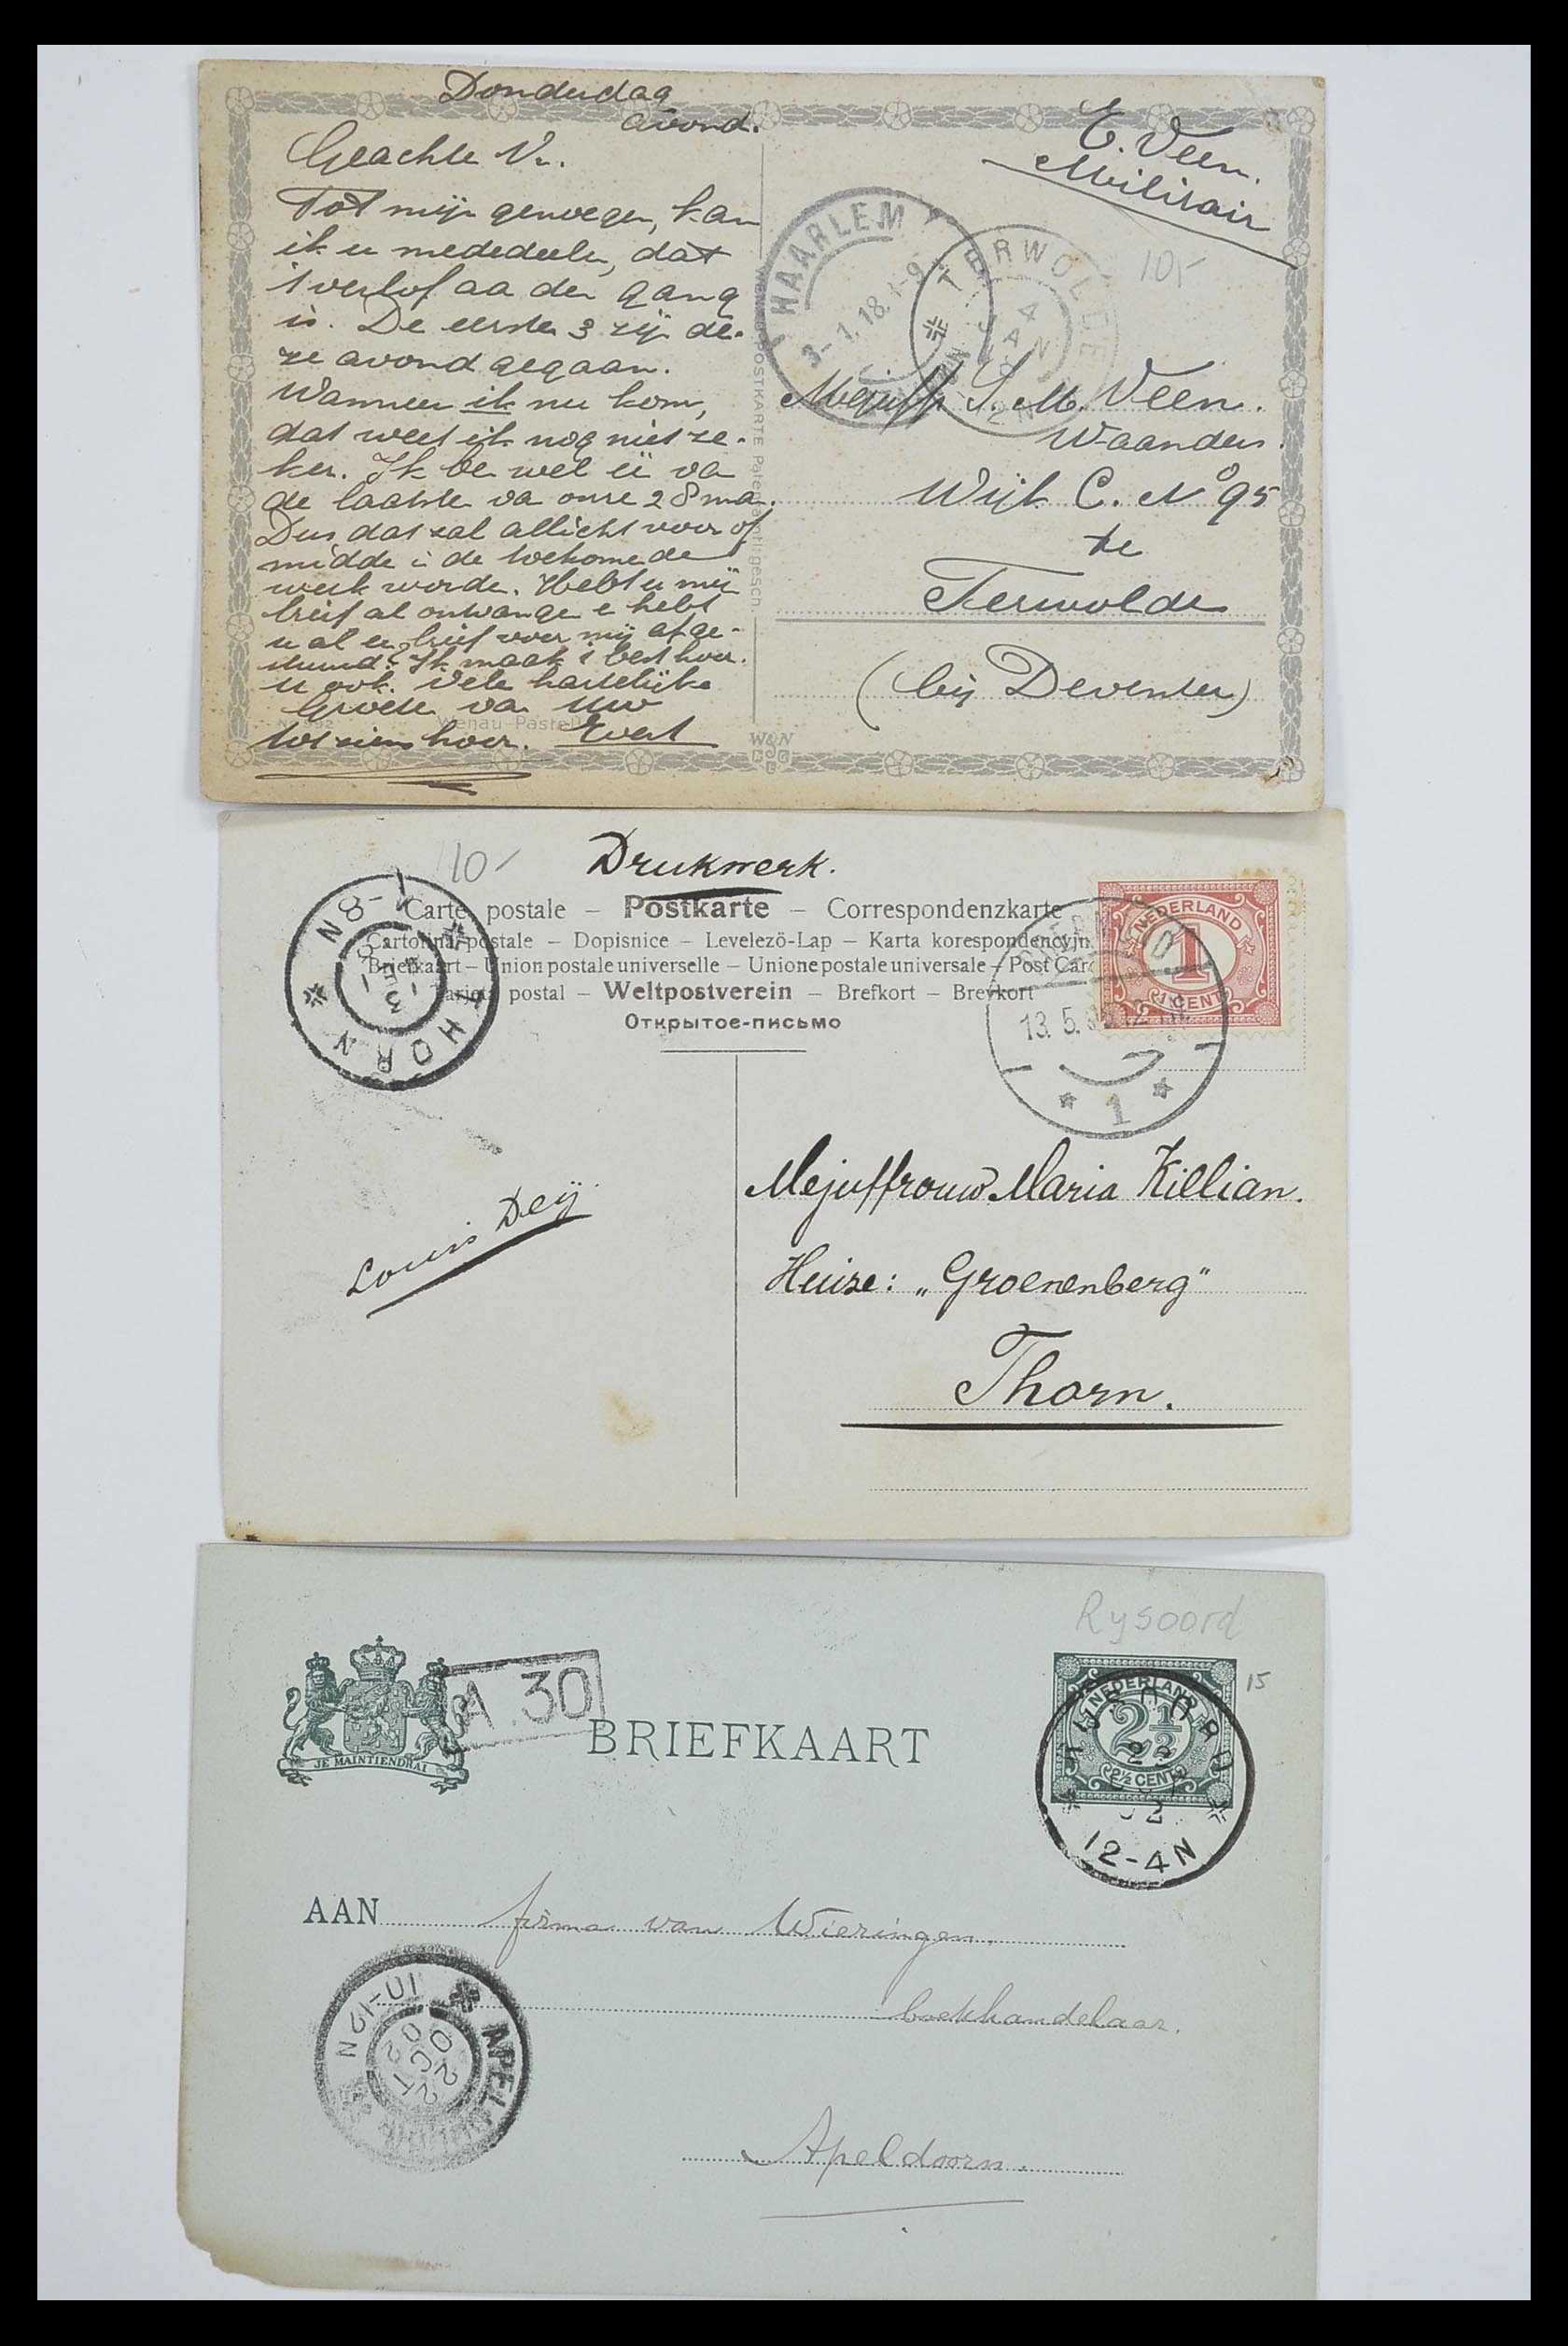 Donderdag
avond.
Geachte V.
Tot mijn genoegen, kan
ik u mededeele, dat
't verlof aa den gang
is. De eerste 3 zijn de-
ze avond gegaan.
Wanneer ik nu kom,
dat weet ik nog niet ze-
ker. Ik be wel ee va
de laatste va onze 28 ma.
Dus dat zal allicht voor of
midde i de toekomede
week worde. Hebt u mij
brief al ontvange e hebt
u al ee brief voor mij afge-
stuurd? Ik maak 't best hoor.
u ook. Vele hartelijke
Groete va Uw
tot ziens hoor. Evert
E. Veen.
Militair
10,-
HAARLEM
3-1.18.
TERWOLDE
4
JAN
Mejuffr. S. M. Veen.
Waanders.
Wijk C. No 95
te
Terwolde
(bij Deventer)
POSTKARTE Patentamtl. gesch.
Wenau-Pastell
W&N
10-
Drukwerk.
Carte postale – Postkarte – Correspondenzkarte
Cartolina postale – Dopisnice – Levelezö-Lap – Karta korespondencyjn
Briefkaart – Union postale universelle – Unione postale universale – Post Car
Tarjeta postal – Weltpostverein – Brefkort – Brevkort
Открытое-письмо
NEDERLAND
1
1 CENT
13. 5.
1
THORN
-8N
Louis Deÿ.
Mejuffrouw Maria Killian.
Huize: „Groenenberg"
Thorn.
Rysoord
15
A.30
JE MAINTIENDRAI
BRIEFKAART
NEDERLAND
2½
2½ CENT
12-4N
AAN firma van Wieringen,
boekhandelaar.
Apeldoorn.
10-12N
22
OCT
02